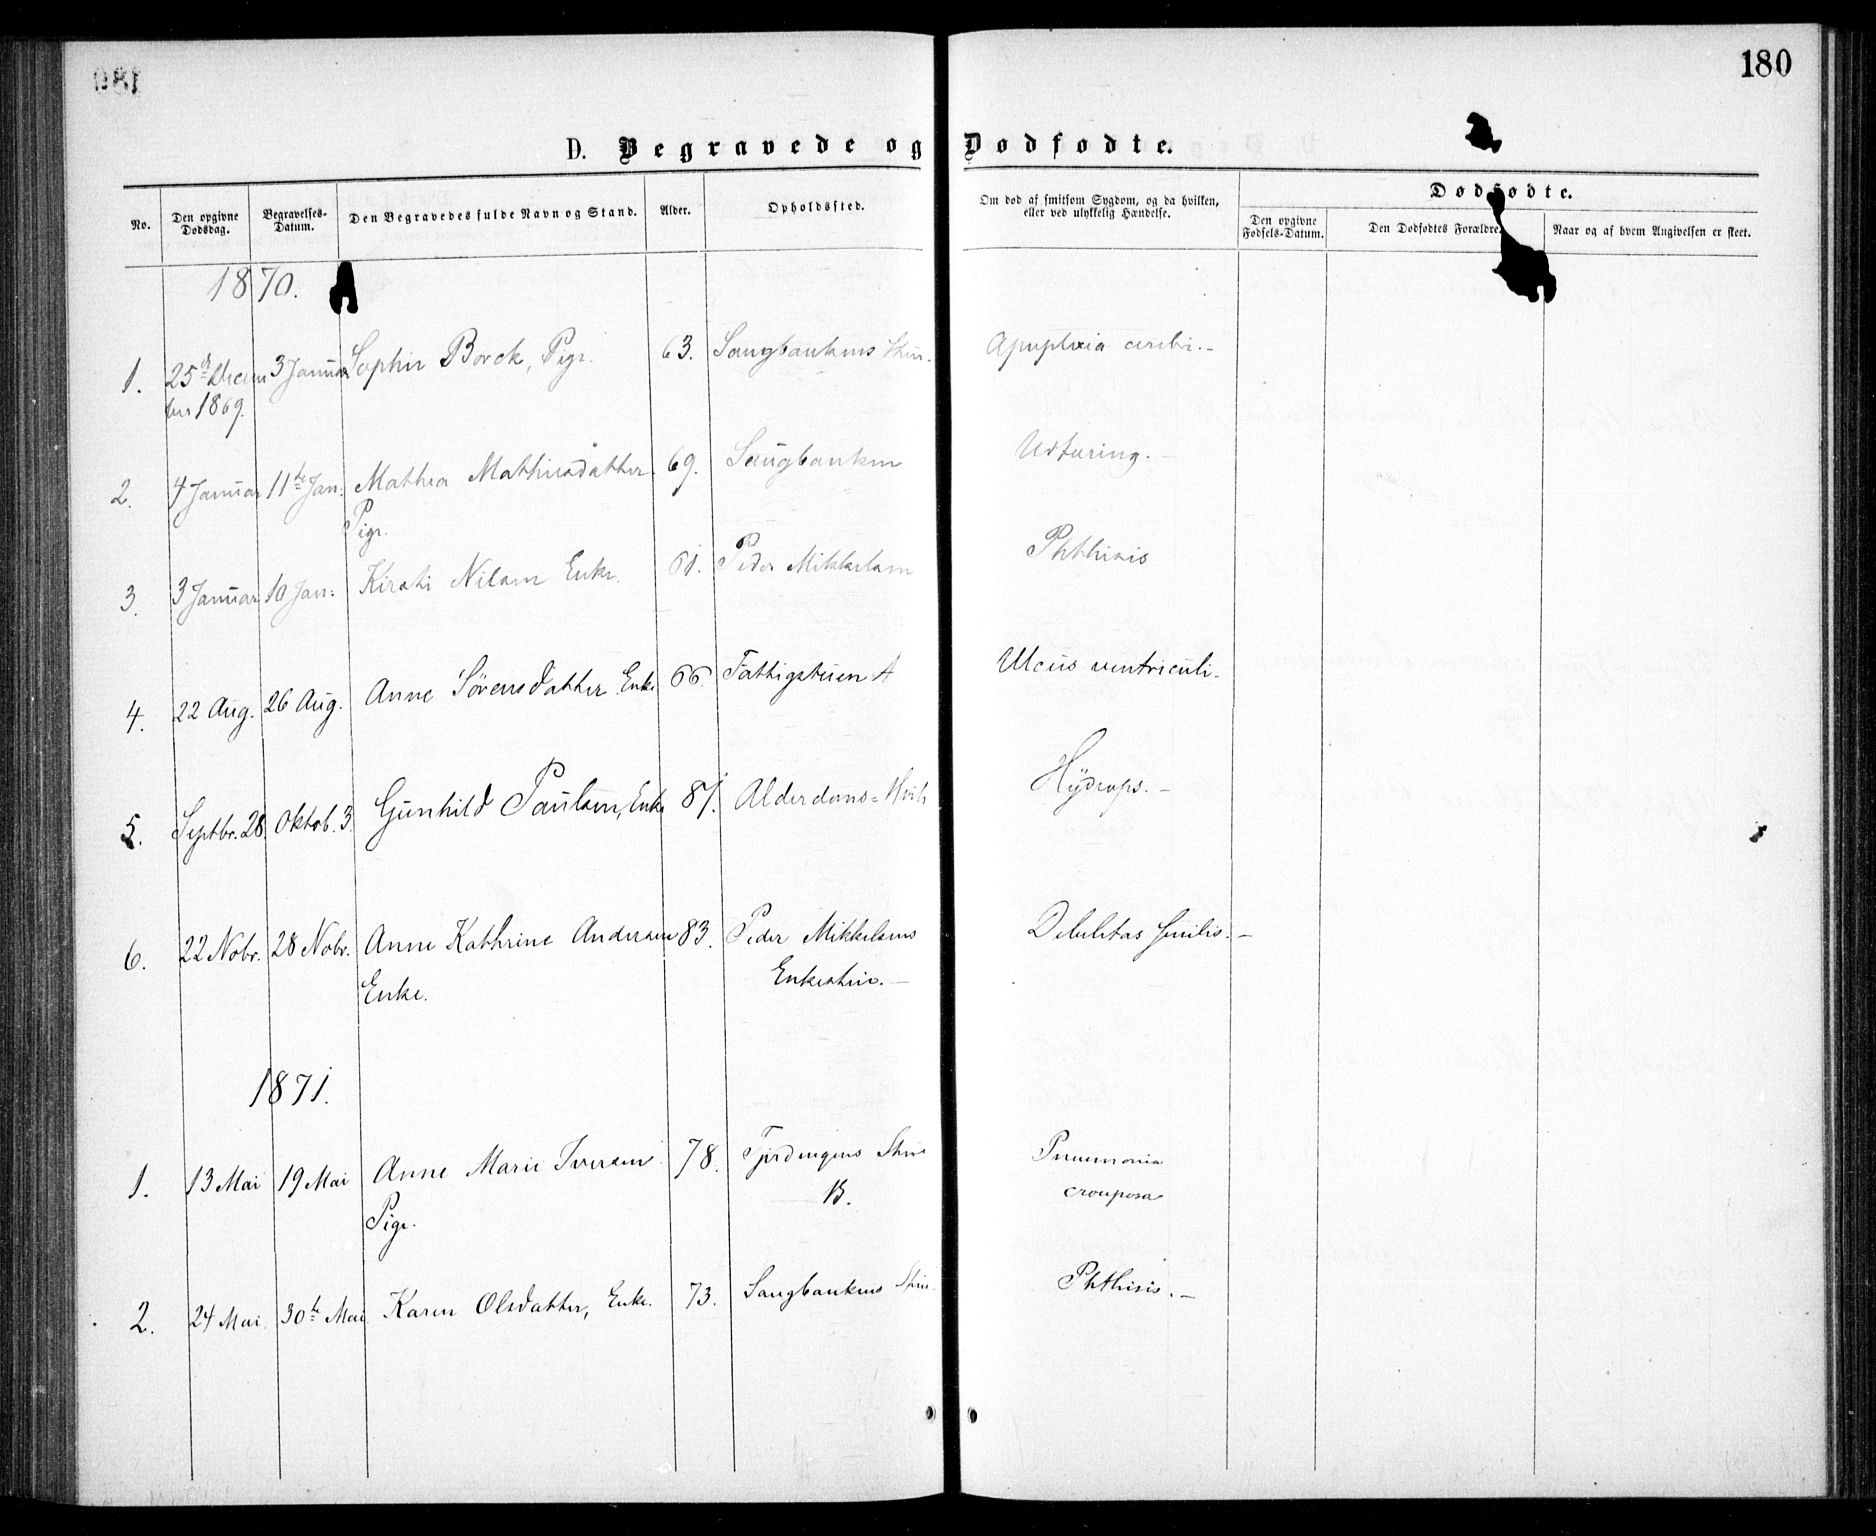 180
D. Begravede og Dødfødte.
No. Den opgivne Dødsdag. Begravelses-Datum. Den Begravedes fulde Navn og Stand. Alder. Opholdssted. Om død af smitsom Sygdom, og da hvilken, eller ved ulykkelig Hændelse. Dødfødte.
Den opgivne Fødsels-Datum. Den Dødfødtes Forældre. Naar og af hvem Angivelsen er skeet.
1870.
1. 25de Decem 3 Januar Sophie Borck, Pige. 63. Saugbankens Apoplexia cerebri.-
ber 1869.
2. 4 Januar 11te Jan: Mathea Mathiesdatter 69. Saugbanken Udtæring.-
Pige.
3. 3 Januar 10 Jan: Kirsti Nilsen Enke. 61. Peder Mikkelsen Phthisis
4. 22 Aug. 26 Aug. Anne Sørensdatter Enke 66. Fattigstuen A Ulcus ventriculi.
5. Septbr. 28 Oktob. 3. Gunhild Paulsen, Enke 81. Alderdoms-Hvile Hydrops.-
6. 22 Nobr. 28 Nobr. Anne Kathrine Andersen 83. Peder Mikkelsens Debilitas senilis.-
Enke. Enkestue.-
1871.
1. 13 Mai 19 Mai Anne Marie Iversen 78. Stue Pneumonia
Pige. B. crouposa
2. 24 Mai. 30te Mai Karen Olsdatter, Enke. 73. Saugbankens Stue. Phthisis.-